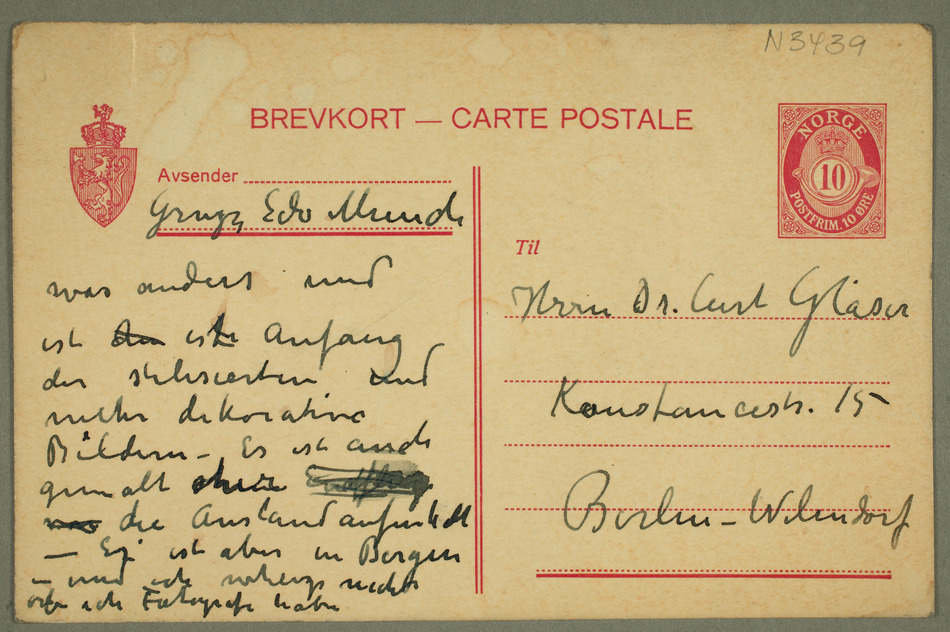 N3439
BREVKORT — CARTE POSTALE
NORGE
10
POSTFRIM. 10 ØRE
Avsender
Edv Munch
was anders und
ist den iste Anfang
der stilisierten und
mehr dekorative
Bildern – Es ist auch
gemalt ohne
die Auslandaufenthalt
— Es ist aber in Bergen
– und ich nicht
ob ich Fotografi habe
Til
Herrn Dr. Curt Gläser
Konstancestr. 15
Berlin – Wilmdorf